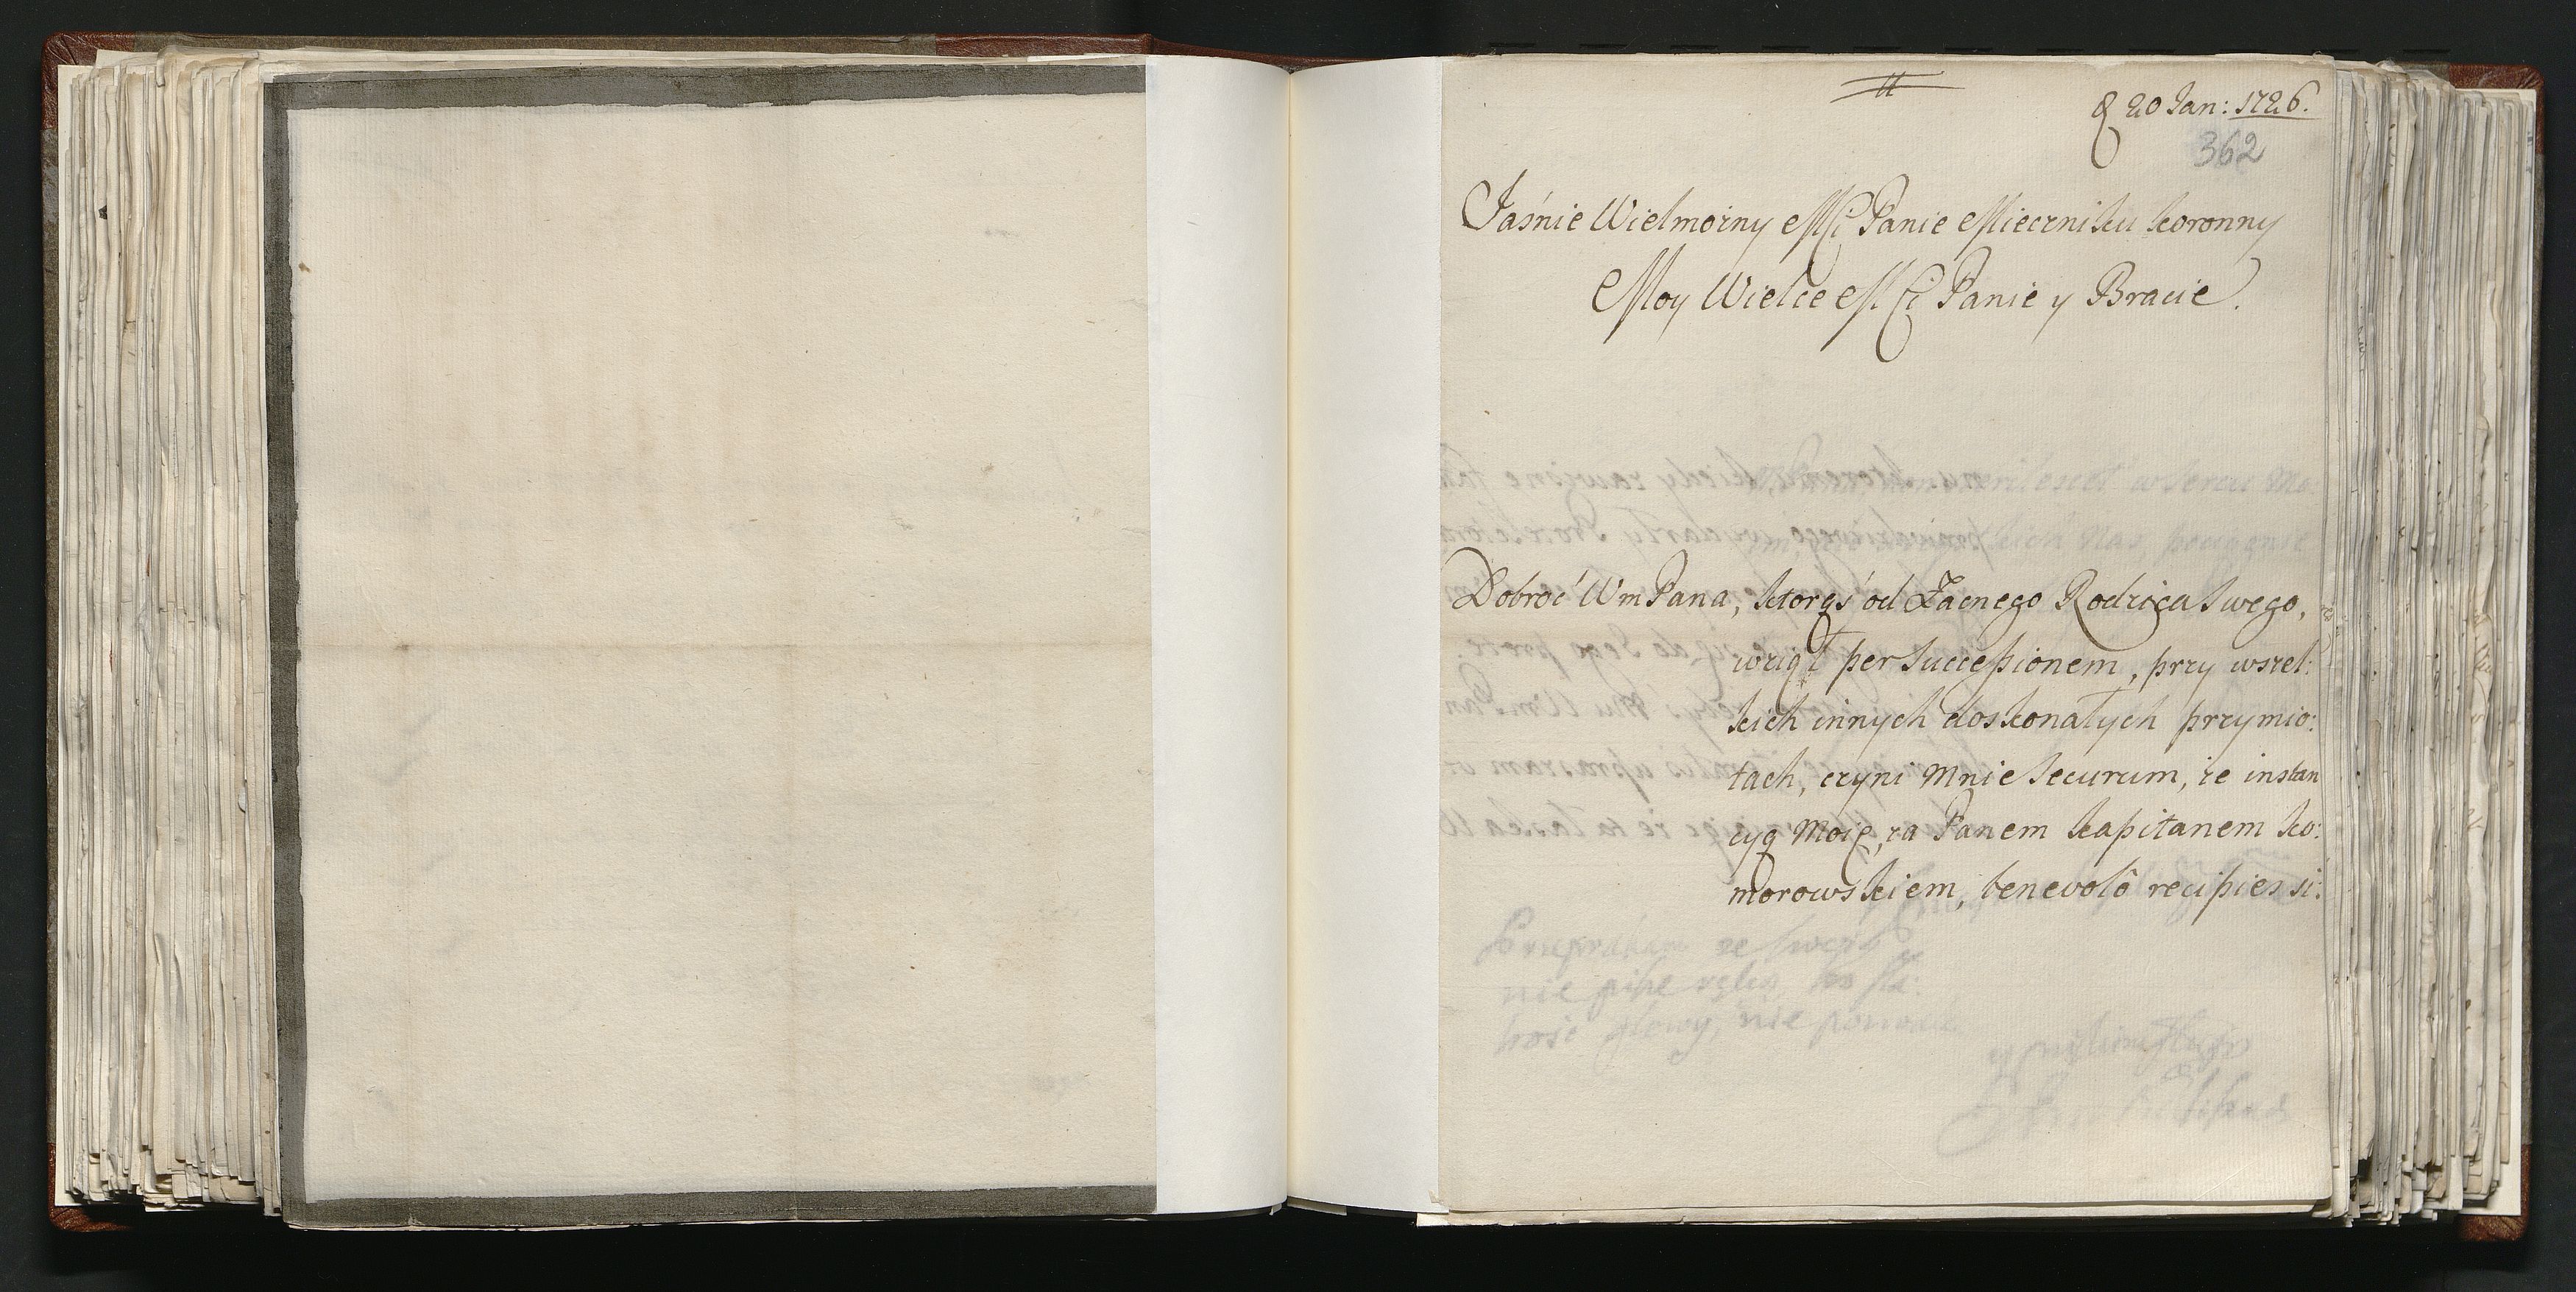 20 Jan: 1726.
362
Jaśnie Wielmożny Mści Panie Mieczniku koronny
Moy Wielce Mści Panie y Bracie.
Dobroć Wm Pana, ktorąś od Zacnego Rodzica Swego,
wziął per Successionem, przy wszel:
kich innych doskonałych przymio:
tach, czyni Mnie Securum, że instan
cyą Moię, za Panem kapitanem ko:
morowskiem, benevolô recipies si: